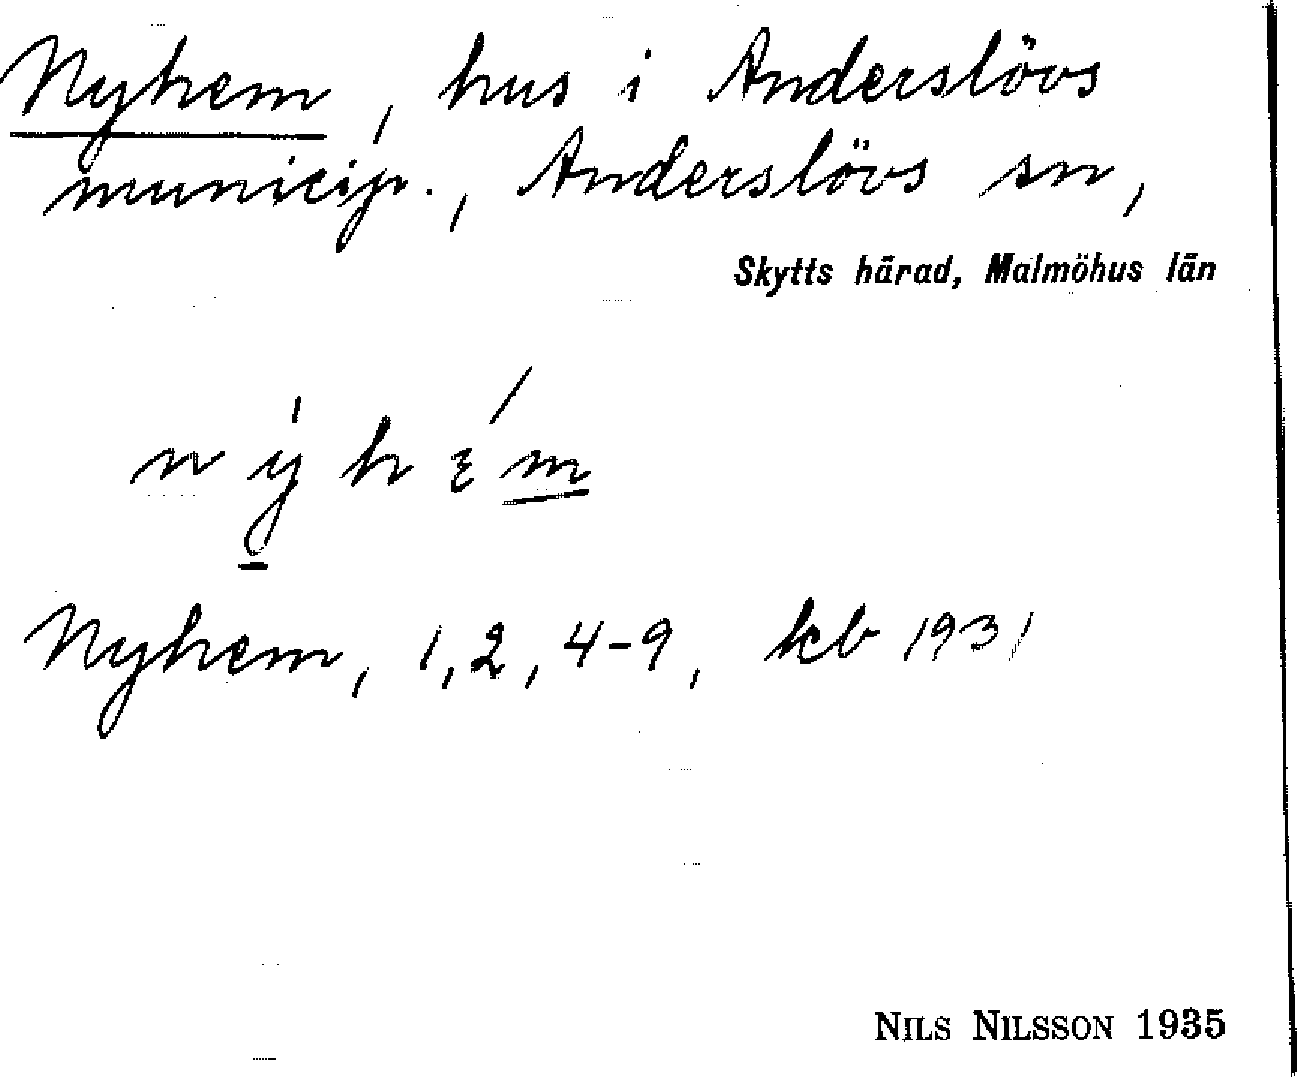 Nyhem, hus i Anderslövs
municip., Anderslövs sn,
Skytts härad, Malmöhus län
ný̱hɛ́m̲
Nyhem, 1, 2, 4-9, kb 1931
NILS NILSSON 1935